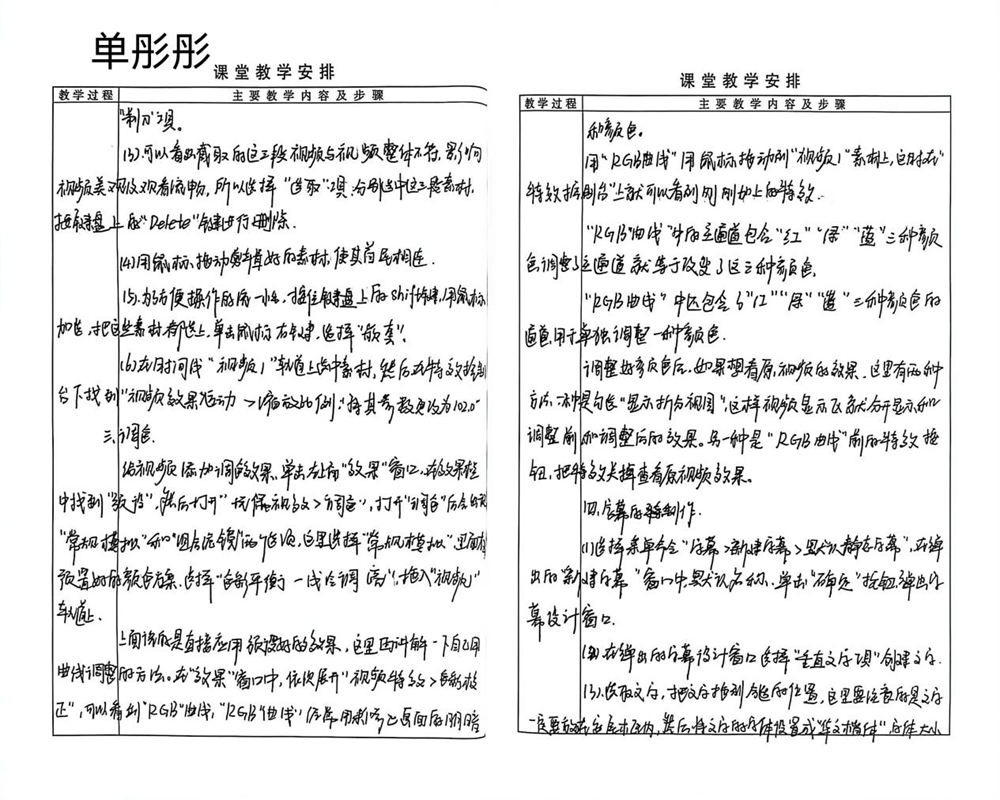 单彤彤
课堂教学安排
教学过程 主要教学内容及步骤
"剃刀"项。
(3).可以看出截取的这三段视频与视频整体不符,影响
视频美观及观看流畅,所以选择"选取"项.分别选中这三段素材,
按键盘上的"Delete"键进行删除.
(4)用鼠标拖动剪辑好的素材,使其首尾相连.
(5).为方便操作的统一化,按住键盘上的shift键,用鼠标
加选,把这些素材都选上,单击鼠标右键,选择"嵌套".
(6)在时间线"视频1"轨道上选中素材,然后在特效控制
台下找到"视频效果运动>缩放比例",将其参数更改为102.0"
三.调色.
给视频添加调色效果.单击左面"效果"窗口,在效果栏
中找到"预设",然后打开"
"常规模拟"和" 选项,这里选择"常规模拟"里面有
预置好的颜色方案,选择"色彩平衡 一 调 "拖入"视频1"
轨道上.
上面讲的是直接应用预设好的效果,这里再讲解一下自己用
曲线调整的方法。在"效果"窗口中,依次展开"视频特效>色彩校
正",可以看到"RGB"曲线,"RGB"曲线 画面的明暗
课堂教学安排
教学过程 主要教学内容及步骤
和颜色。
用"RGB曲线"用鼠标拖动到"视频1"素材上,这时在"
特效控制台"上就可以看到刚刚加上的特效.
"RGB"曲线"中的主通道包含"红""绿""蓝"三种颜
色,调整了主通道就等于改变了这三种颜色.
"RGB曲线"中还包含了"红""绿""蓝"三种颜色的
通道,用于单独调整一种颜色.
调整好颜色后,如果想看原视频的效果.这里有两种
方法,一种是勾选"显示拆分视图",这样视频显示区就分开显示和
调整前和调整后的效果。另一种是"RGB曲线"前的特效按
钮,把特效关掉查看原视频效果。
四.字幕的制作.
(1)选择菜单命令"字幕>新建字幕>默认静态字幕",在弹
出的"新建字幕"窗口中默认名称.单击"确定"按钮弹出字
幕设计窗口.
(2).在弹出的字幕设计窗口选择"垂直文字项"创建文字.
(3).选取文字,把文字拖到合适的位置,这里要注意的是文字
一定要放在安全框内,然后将文字的字体设置成"华文楷体",字体大小